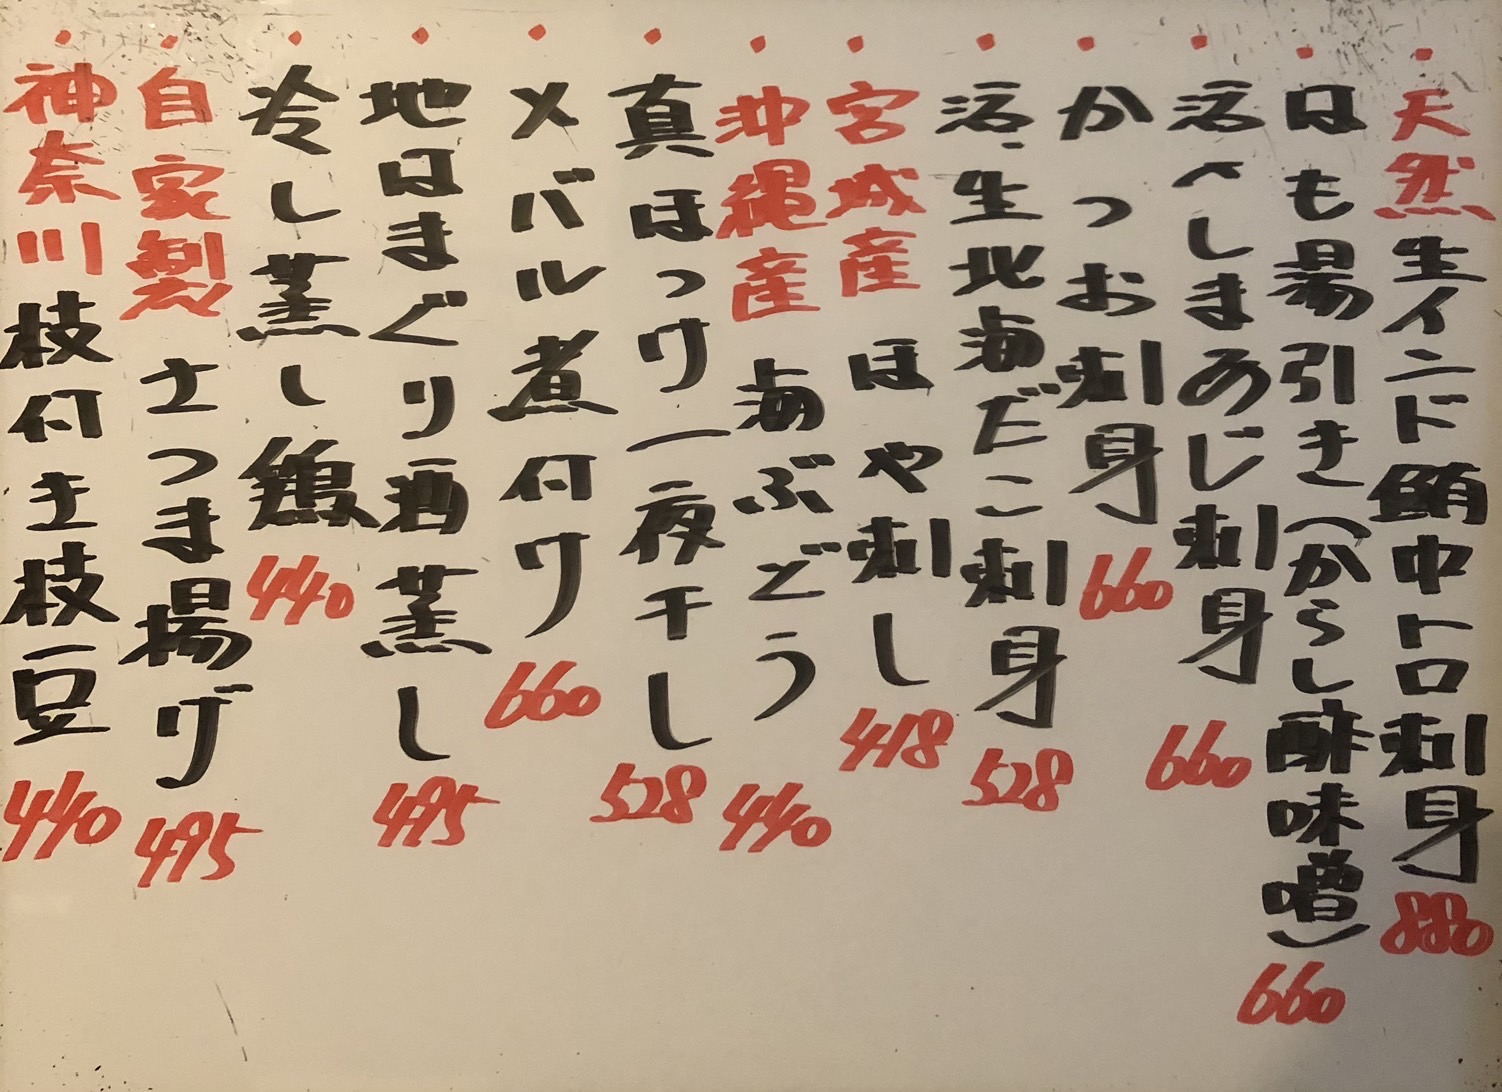 ・天然生インド鮪中トロ刺身880
・はも湯引き(からし酢味噌)660
・活〆しまあじ刺身660
・かつお刺身660
・活〆生北海だこ刺身528
・宮城産ほや刺し418
・沖縄産海ぶどう440
・真ほっケ一夜干し528
・メバル煮付ケ660
・地はまぐり酒蒸し495
・冷し蒸し鶏440
・自家製さつま揚げ495
・神奈川枝付き枝豆440